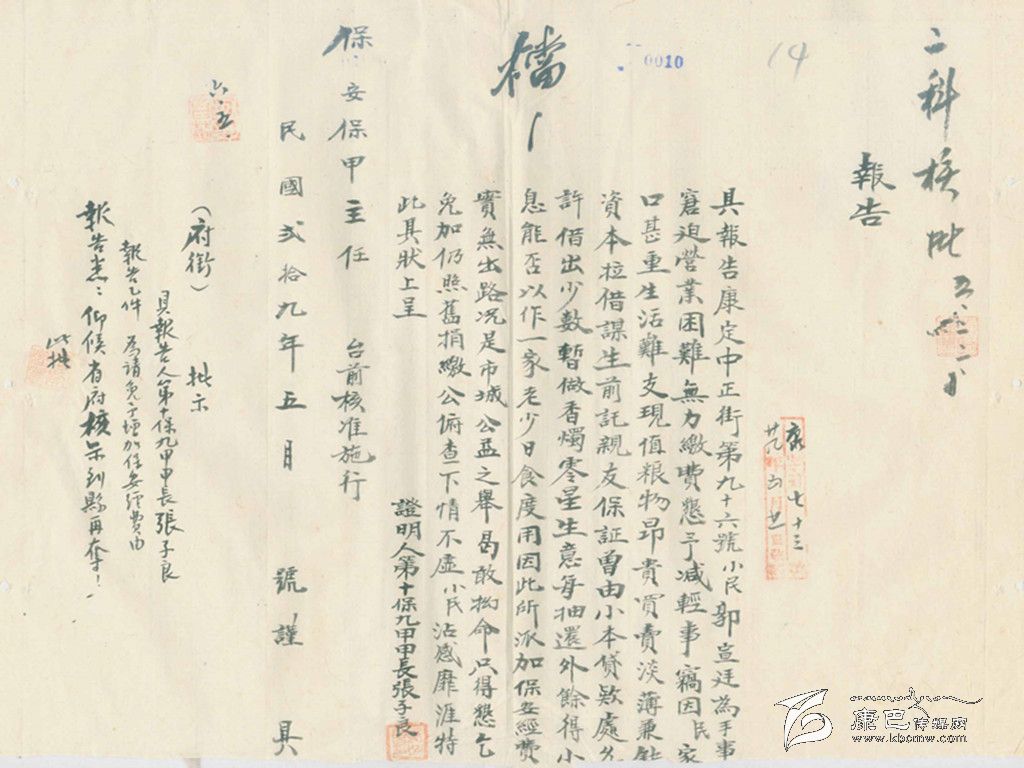 二科核
報告
具報告康定中正街第九十六號小民郭宣廷為手事
窘迫營業困難無力繳費懇予減輕事竊因民家
口甚重生活難支現值粮物昂貴買賣淡薄兼
資本拉借謀生前託親友保証曾由小本貸欵處
許借出少數暫做香燭零星生意每抽還外餘得小
息能否以作一家老少日食度用因此所派加保安經費
實無出路况是市城公益之舉曷敢抝命只得懇乞
免加仍照舊捐繳公俯查下情不虛小民沾感靡涯特
此具狀上呈
證明人第十保九甲甲長張子良
保安保甲主任 台前核准施行
民國弍拾九年五月 號謹具
六、五、
(府銜) 批示
具報告人第十保九甲甲長張子良
報告乙件 為請免予增加保安經費由
報告悉:仰候有府核示到縣再奪!
此批
檔
0010
14
七十三
康巴传媒网
www.kbcmw.com